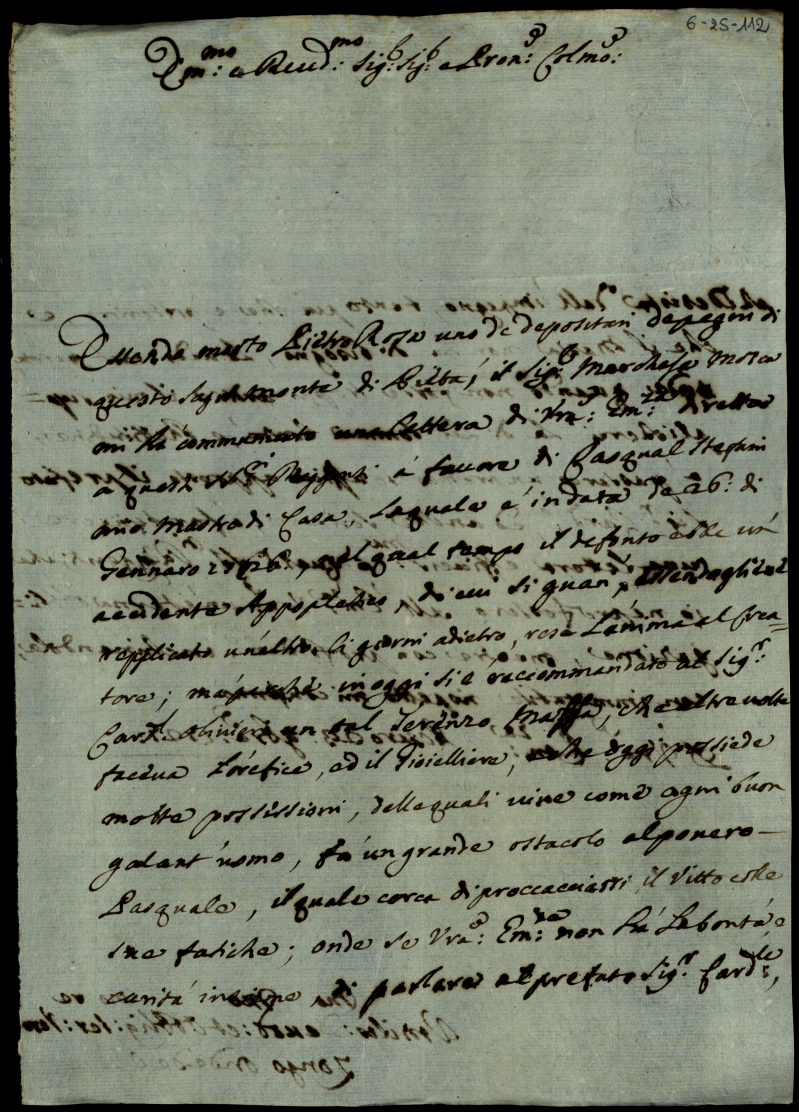 6-25-112
Em:mo e Reud:mo Sig:r Sig:r e Pron:e Colmo:
Essendo morto Pietro Rosa uno de depositari de pegni di
questo Sagro monte di Pietà, il Sig:r Marchese Mosca
mi ha communicato una Lettera di Vra: Em:za diretta
a questi SS:ri Reggenti à favore di Pasqual Stefani
mio mastro di Casa, la quale è in data de 26: di
Gennaro 1726:, nel qual tempo il defonto ebbe un
accidente Appopletico, di cui si guarì, essendogliene
repplicato un'altro li giorni adietro, rese L'anima al Crea=
tore; mà perchè in oggi si è raccommandato al Sig:r
Card:l Olivieri un tal Terenzo Massa, che altre volte
faceva L'orefice, ed il Gioielliere, che oggi possiede
molte possissioni, delle quali vive come ogni buon
galant'uomo, fà un grande ostacolo al povero
Pasquale, il quale cerca di proccacciarsi il Vitto colle
sue fatiche; onde se Vra: Em:za non hà La bontà, e
carità insieme di parlare al prefato Sig:r Card:le,